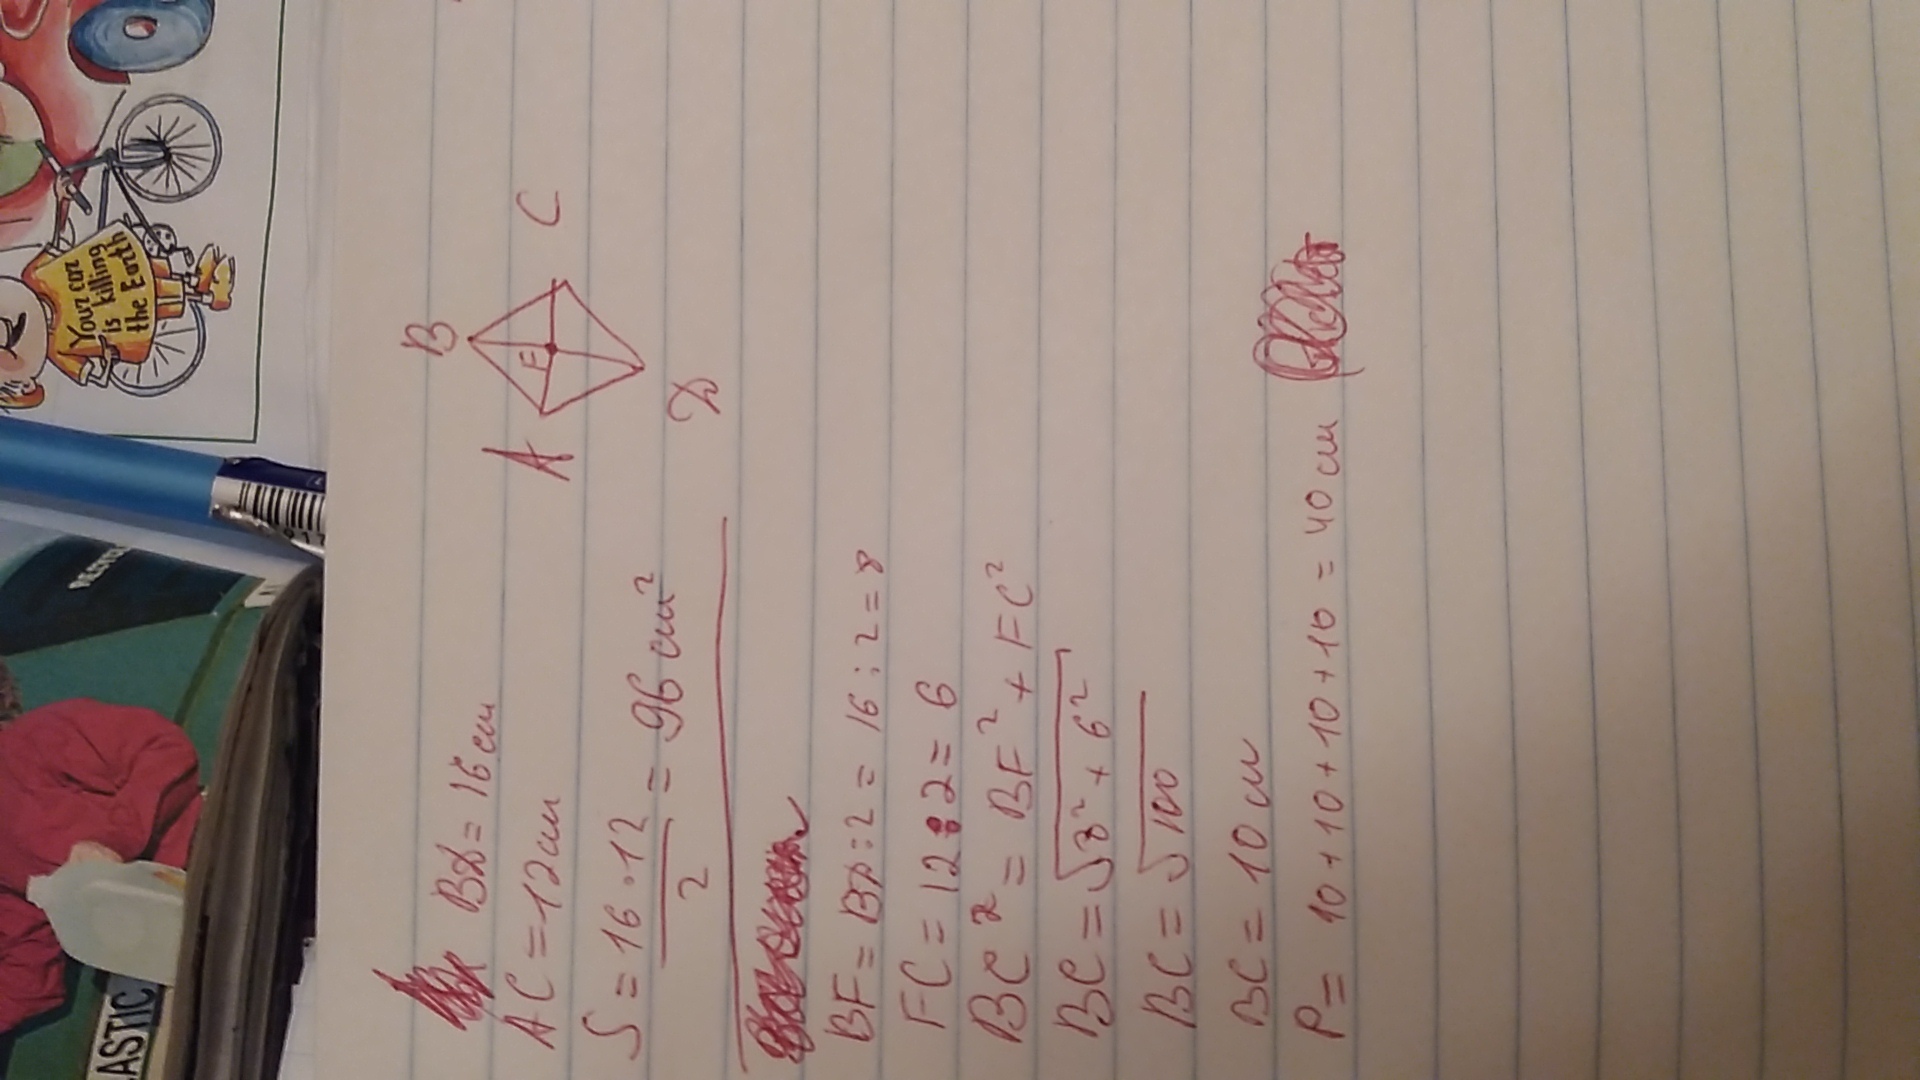 Your car
is killing
the Earth
ASTIC
BD = 16 см
AC = 12 см
S = 16 · 12 / 2 = 96 см²
B
A
C
D
F
BF = BD : 2 = 16 : 2 = 8
FC = 12 : 2 = 6
BC² = BF² + FC²
BC = √8² + 6²
BC = √100
BC = 10 см
P = 10 + 10 + 10 + 10 = 40 см